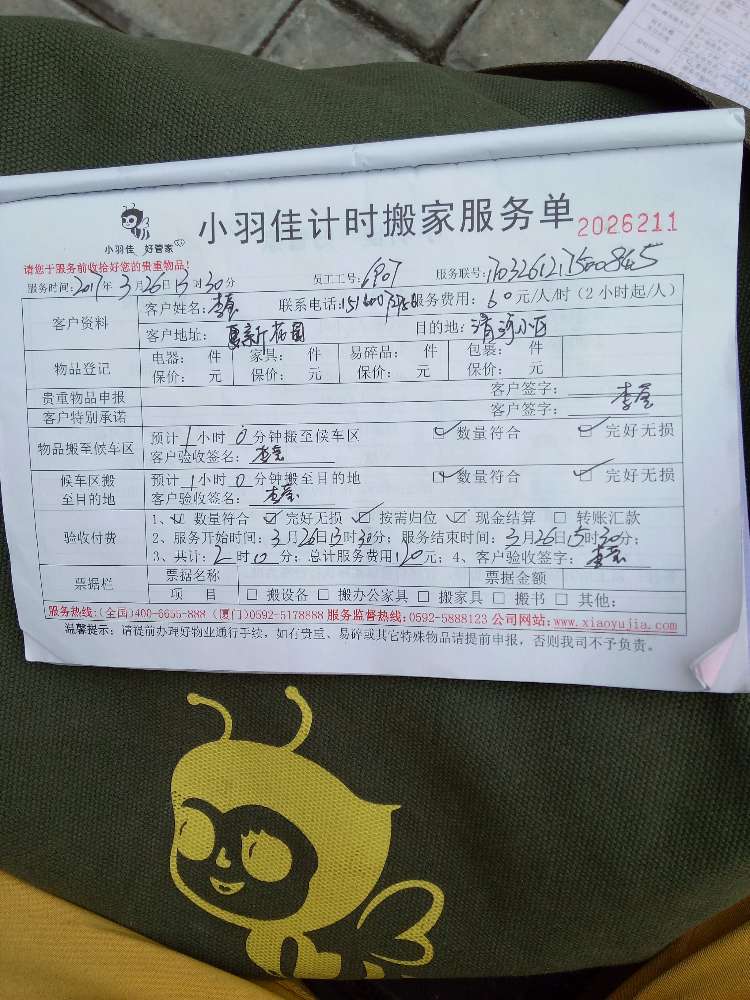 小羽佳计时搬家服务单 2026211
小羽佳 好管家
请您于服务前收拾好您的贵重物品!
服务时间:2017年3月26日13时30分 员工工号:6907 服务联号:
客户资料
客户姓名:李莹 联系电话: 服务费用:60元/人/时(2小时起/人)
客户地址:夏新花园 目的地:清河小区
物品登记
电器: 件 家具: 件 易碎品: 件 包裹: 件
保价: 元 保价: 元 保价: 元 保价: 元
贵重物品申报 客户签字:李莹
客户特别承诺 客户签字:
物品搬至候车区
预计1小时0分钟搬至候车区 数量符合 完好无损
客户验收签名:李莹
候车区搬至目的地
预计1小时0分钟搬至目的地 数量符合 完好无损
客户验收签名:李莹
验收付费
1、数量符合 完好无损 按需归位 现金结算 □ 转账汇款
2、服务开始时间:3月26日13时30分;服务结束时间:3月26日15时30分;
3、共计:2时0分;总计服务费用120元;4、客户验收签字:李莹
票据栏
票据名称 票据金额
项 目 □ 搬设备 □ 搬办公家具 □ 搬家具 □ 搬书 □ 其他:
服务热线:(全国)400-6655-888 (厦门)0592-5178888 服务监督热线:0592-5888123 公司网站:www.xiaoyujia.com
温馨提示:请提前办理好物业通行手续,如有贵重、易碎或其它特殊物品请提前申报,否则我司不予负责。